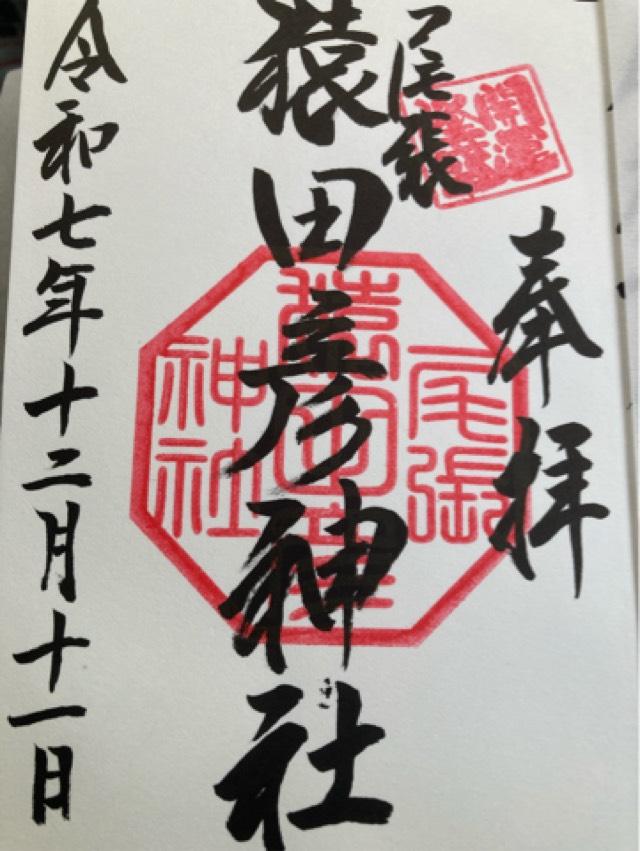 奉拝
尾張
猿田彦神社
令和七年十二月十一日
尾張
猿田彦
神社